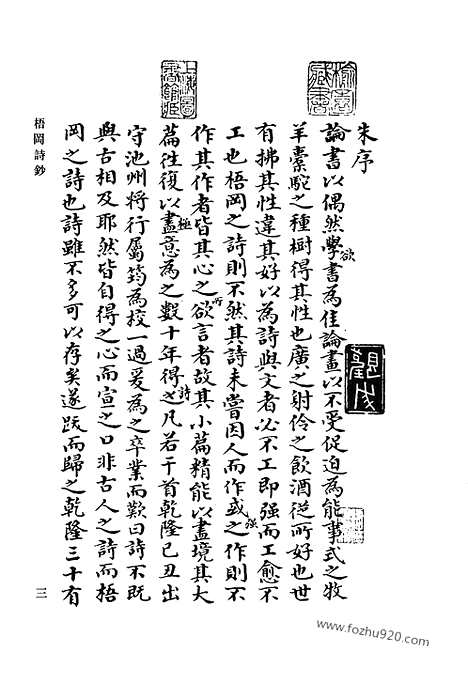 朱序
論書以偶然學書為佳論畫以不受促迫為能事式之牧
欲
羊橐駝之種樹得其性也廣之射伶之飲酒從所好也世
有拂其性違其好以為詩與文者必不工即强而工愈不
工也梧岡之詩則不然其詩未嘗因人而作或之作則不
强
作其作者皆其心之欲言者故其小篇精能以盡境其大
所
篇往復以盡意為之數十年得之凡若干首乾隆己丑出
極
詩
守池州將行屬筠為校一過爰為之卒業而歎曰詩不既
與古相及耶然皆自得之心而宣之口非古人之詩而梧
岡之詩也詩雖不多可以存矣遂跋而歸之乾隆三十有
梧岡詩鈔
三
www.fozhu920.com